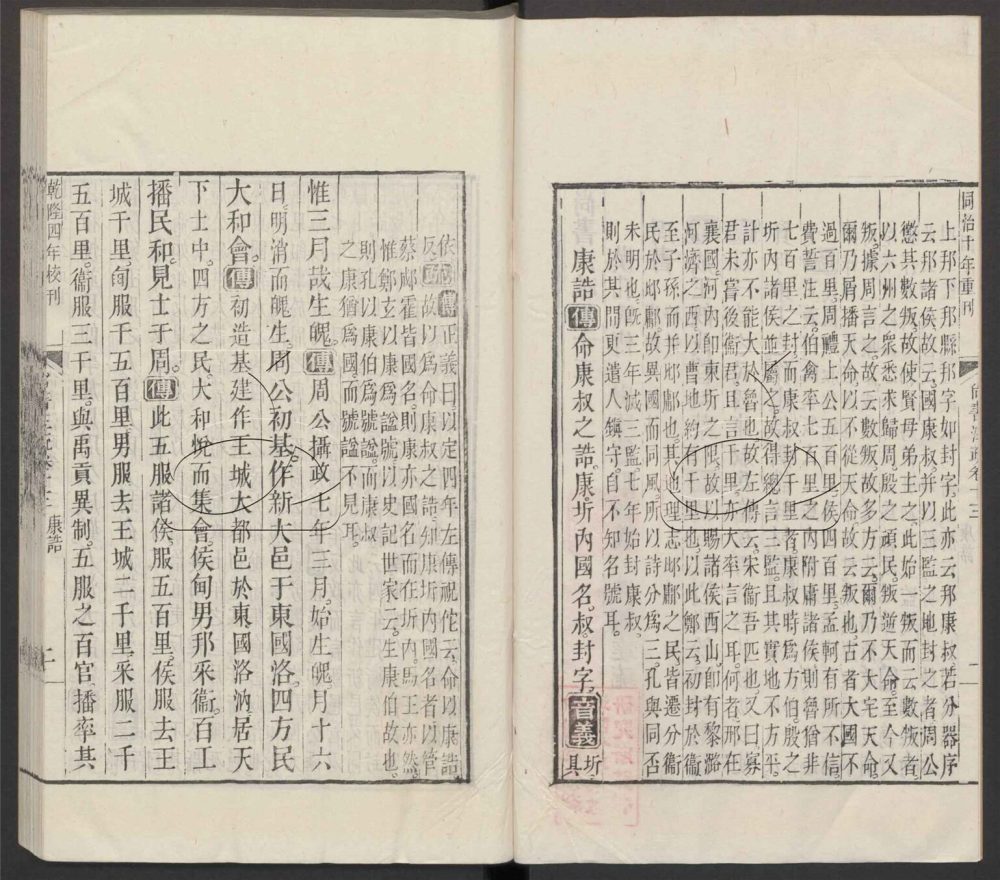 同治十年重刊
尚書注疏卷十三
上邦下邦縣邦字如封字此亦云邦康叔若分器序
云邦諸侯故云國康叔并以三監之地封之者周公
懲其數叛故使賢母弟主之此始一叛而云數叛者
以六州之眾悉來歸周殷之頑民叛逆天命至今又
叛據周言之故云數叛故多方云爾乃不大宅天命
爾乃屑播天命以不從天命故云叛也古者大國不
過百里周禮上公五百里侯四百里孟軻有所不信
費誓注云伯禽率七百里之內附庸諸侯則魯猶非
七百里之封而康叔封千里者康叔時爲方伯殷之
圻內諸侯並屬之故得總言三監且其實地不方平
計亦不能大於魯也故左傳云宋衞吾匹也又曰寡
君未嘗後衞君且言千里亦大率言之耳何者邢在
襄國河內卽東圻之限故以賜諸侯西山卽有黎潞
河濟之西以曹地約有千里也以此鄭云初封於衞
至子孫而并邶鄘也其地理志邶鄘之民皆遷分衞
民於邶鄘故異國而同風所以詩分爲三孔與同否
未明也旣三年滅三監七年始封康叔
則於其間更遣人鎭守自不知名號耳
康誥傳命康叔之誥康圻內國名叔封字音義圻具
依反疏傳正義曰以定四年左傳祝佗云命以康誥
故以爲命康叔之誥知康圻內國名者以管
蔡郕霍皆國名則康亦國名而在圻內馬王亦然
惟鄭玄以康爲諡號以史記世家云生康伯故也
則孔以康伯爲號諡而康叔
之康猶爲國而號諡不見耳
惟三月哉生魄傳周公攝政七年三月始生魄月十六
日明消而魄生周公初基作新大邑于東國洛四方民
大和會傳初造基建作王城大都邑於東國洛汭居天
下土中四方之民大和悅而集會侯甸男邦采衞百工
播民和見士于周傳此五服諸侯服五百里侯服去王
城千里甸服千五百里男服去王城二千里采服二千
五百里衞服三千里與禹貢異制五服之百官播率其
康誥
二
乾隆四年校刊